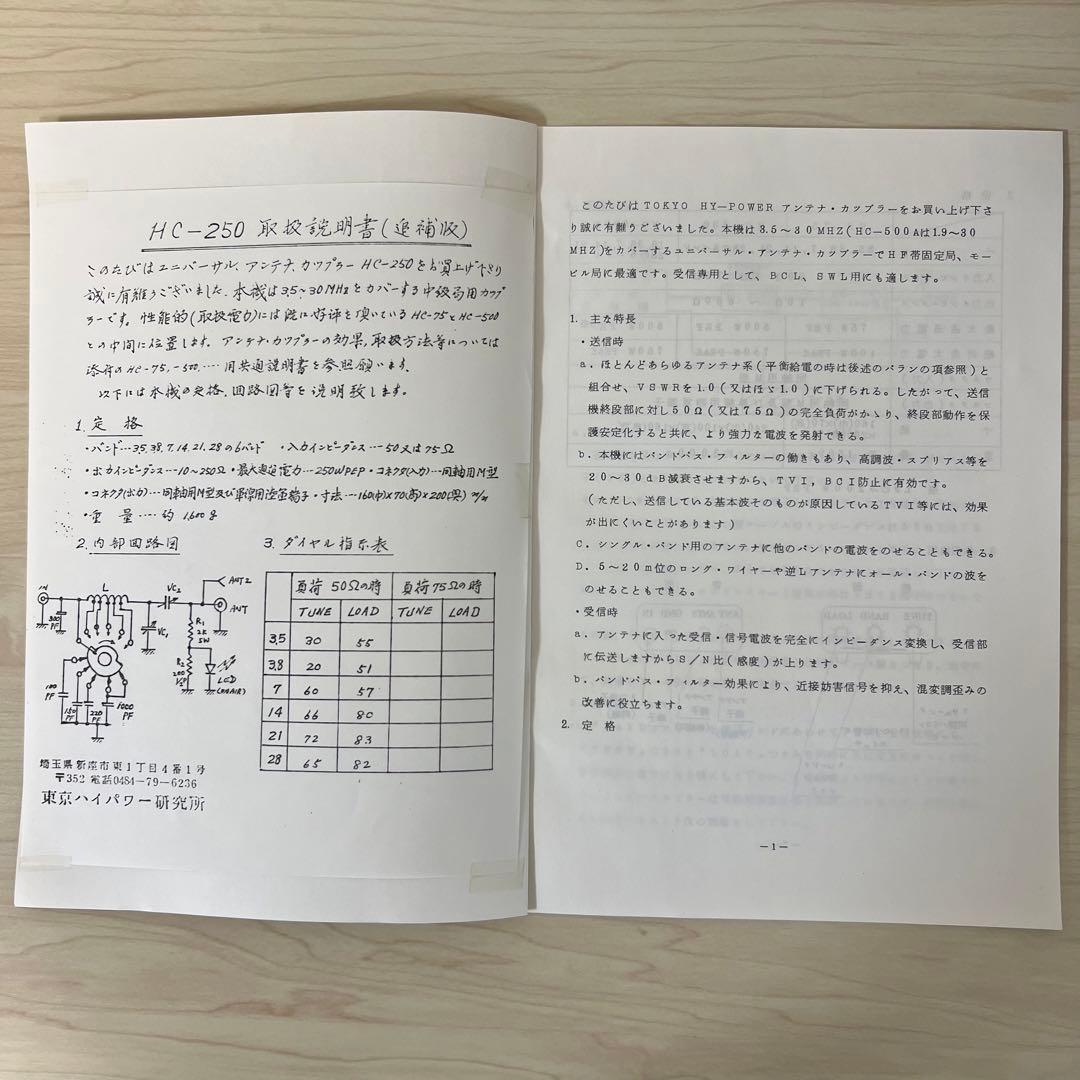 HC-250 取扱説明書(追補版)
このたびはユニバーサル アンテナ カップラー HC-250をお買上げ下さり
誠に有難うございました。本機は3.5~30MHzをカバーする中級局用カップ
ラーです。性能的(取扱電力)には既に好評を頂いているHC-75とHC-500
との中間に位置します。アンテナ・カップラーの効果、取扱方法等については
添付のHC-75,-500‥‥用共通説明書を参照願います。
以下には本機の定格、回路図等を説明致します。
1. 定 格
・バンド‥‥3.5, 3.8, 7, 14, 21, 28の6バンド ・入力インピーダンス‥‥50又は75Ω
・出力インピーダンス‥‥10~250Ω ・最大通過電力‥‥250WPEP ・コネクタ(入力)‥‥同軸用M型
・コネクタ(出力)‥‥同軸用M型及び単線用陸軍端子 ・寸法‥‥160(巾)×70(高)×200(奥) m/m
・重 量‥‥約 1,600g
2. 内部回路図
IN
L
VC2
ANT2
ANT
300
PF
VC1
R1
2K
5W
R2
200
1/2P
LED
(ON AIR)
100
PF
150
PF
220
PF
1000
PF
埼玉県新座市東1丁目4番1号
〒352 電話0484-79-6236
東京ハイパワー研究所
3. ダイヤル指示表
負荷 50Ωの時 負荷75Ωの時
TUNE LOAD TUNE LOAD
3.5 30 55
3.8 20 51
7 60 57
14 66 80
21 72 83
28 65 82
このたびはTOKYO HY-POWER アンテナ・カップラーをお買い上げ下さ
り誠に有難りございました。本機は3.5~30MHZ(HC-500Aは1.9~30
MHZ)をカバーするユニバーサル・アンテナ・カップラーでHF帯固定局、モー
ビル局に最適です。受信専用として、BCL、SWL用にも適します。
1. 主な特長
・送信時
a. ほとんどあらゆるアンテナ系(平衡給電の時は後述のバランの項参照)と
組合せ、VSWRを1.0(又はほゞ1.0)に下げられる。したがって、送信
機終段部に対し50Ω(又は75Ω)の完全負荷がかゝり、終段部動作を保
護安定化すると共に、より強力な電波を発射できる。
b. 本機にはバンドパス・フィルターの働きもあり、高調波・スプリアス等を
20~30dB減衰させますから、TVI,BCI防止に有効です。
(ただし、送信している基本波そのものが原因しているTVI等には、効果
が出にくいことがあります)
C. シングル・バンド用のアンテナに他のバンドの電波をのせることもできる。
D. 5~20m位のロング・ワイヤーや逆Lアンテナにオール・バンドの波を
のせることもできる。
・受信時
a. アンテナに入った受信・信号電波を完全にインピーダンス変換し、受信部
に伝送しますからS/N比(感度)が上ります。
b. バンドパス・フィルター効果により、近接妨害信号を抑え、混変調歪みの
改善に役立ちます。
2. 定 格
-1-